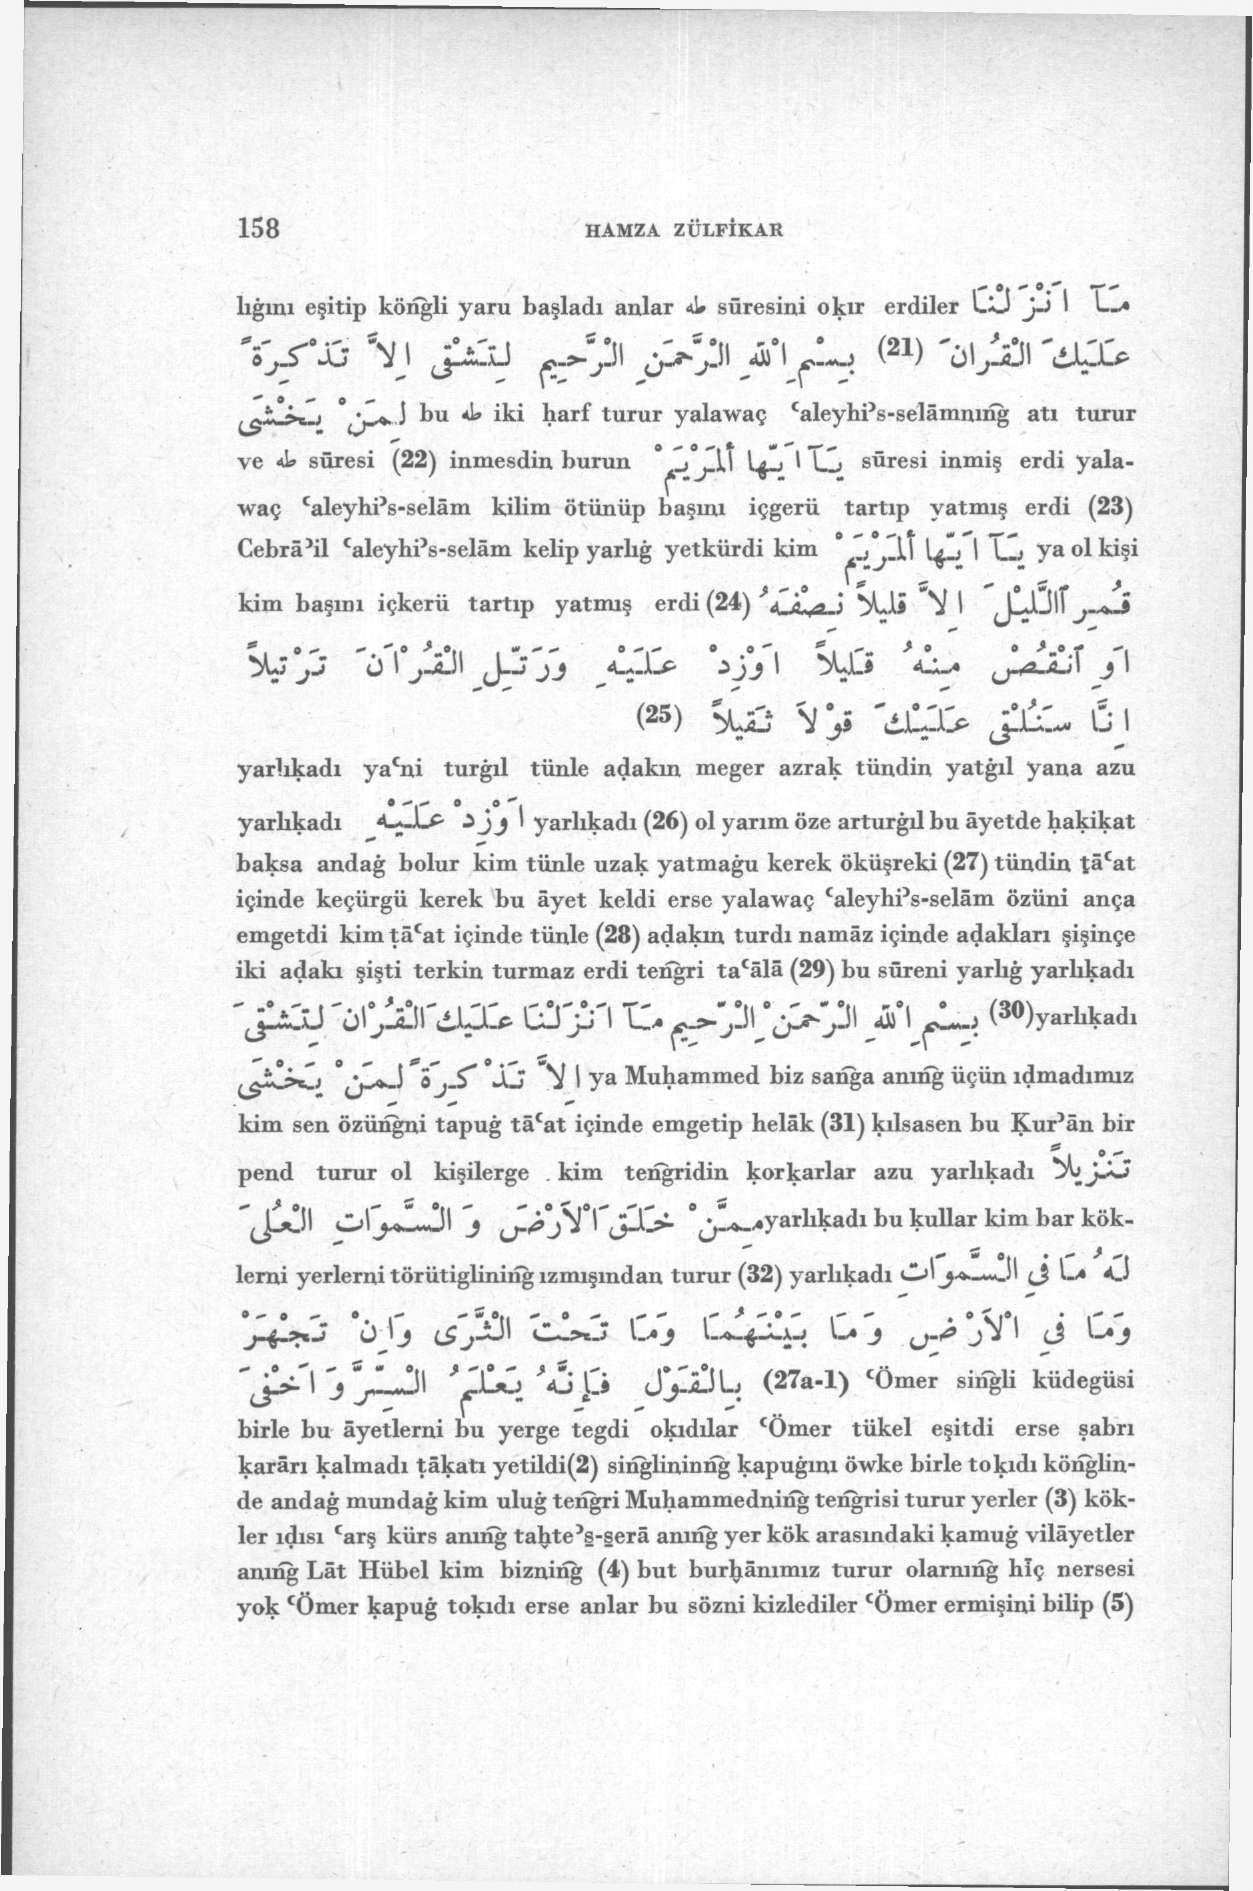 158 HAMZA ZÜLFİKAR
lıġını eşitip köñğli yaru başladı anlar طه sūresini oḳır erdiler مَآ اَنْزَلْنَا
عَلَيْكَ الْقُرانَ (21) بِسْمِ اْللهِ الرَّحْمَنِ الرَّحِيمِ لِتَشْقَى اِلاَّ تَذْكِرَةً
لِمَنْ يَخْشَى bu طه iki ḥarf turur yalawaç ʿaleyhiʾs-selāmnıñğ atı turur
ve طه sūresi (22) inmesdin burun يَآ اَيّهَا ألمْزيَمِ sūresi inmiş erdi yala-
waç ʿaleyhiʾs-selām kilim ötünüp başını içgerü tartıp yatmış erdi (23)
Cebrāʾil ʿaleyhiʾs-selām kelip yarlıġ yetkürdi kim يَآ اَيّهَا ألمْزيَمِ ya ol kişi
kim başını içkerü tartıp yatmış erdi (24) قُمِر آللَّيْلَ اِلاَّ قليلاً نِصْفَهُ
اَوِ آنْقُصْ مِنْهُ قَليلاً اَوْزِدْ عَلَيْهِ وَرَتِّلِ الْقُرْاَنَ تَرْتيلاً
اِنَّا سَنُلْقى عَلَيْكَ قَوْلاً ثَقيلاً (25)
yarlıḳadı yaʿni turġıl tünle aḍakın meger azraḳ tündin yatġıl yana azu
yarlıḳadı اَوْزِدْ عَلَيْهِ yarlıḳadı (26) ol yarım öze arturġıl bu āyetde ḥaḳiḳat
baḳsa andaġ bolur kim tünle uzaḳ yatmaġu kerek öküşreki (27) tündin ṭāʿat
içinde keçürgü kerek bu āyet keldi erse yalawaç ʿaleyhiʾs-selām özüni ança
emgetdi kim ṭāʿat içinde tünle (28) aḍakın turdı namāz içinde aḍakları şişinçe
iki aḍakı şişti terkin turmaz erdi teñğri taʿālā (29) bu sūreni yarlıġ yarlıḳadı
yarlıḳadı(30) بِسْمِ اْللهِ الْرَّحْمَنِ الْرَّحيمِ مَآ اَنْزَلْنَا عَلَيْكَ الْقُرْانَ لِتَشْقَى
اِلاَّ تَذْكِرَةً لِمَنْ يَخْشَى ya Muḥammed biz sañğa anıñğ üçün ıḍmadımız
kim sen özüñğni tapuġ tāʿat içinde emgetip helāk (31) ḳılsasen bu Ḳurʾān bir
pend turur ol kişilerge . kim teñğridin ḳorḳarlar azu yarlıḳadı تَنْزيلاً
مِمَّنْ خَلَقَ اْلاَرْضَ وَ الْسَّموَاتِ الْعُلَى yarlıḳadı bu ḳullar kim bar kök-
lerni yerlerni törütigliniñğ ızmışından turur (32) yarlıḳadı لَهُ مَا فِى الْسَّموَات
وَمَا فِى اْلاَرْضِ وَمَا بَيْنَهُمَا وَمَا تَحْتَ الْثَّرَى وَاِنْ تَجْهَرْ
بِالْقَوْلِ فَإِنَّهُ يَعْلَمُ الْسِّرَّ وَ اَخْفَى (27a-1) ʿÖmer siñğli küdegüsi
birle bu āyetlerni bu yerge tegdi oḳıdılar ʿÖmer tükel eşitdi erse ṣabrı
ḳarārı ḳalmadı ṭāḳatı yetildi(2) siñğlininñğ ḳapuġını öwke birle toḳıdı köñğlin-
de andaġ mundaġ kim uluġ teñğri Muḥammedniñğ teñğrisi turur yerler (3) kök-
ler ıḍısı ʿarş kürs anıñğ taḥteʾs̱-s̱erā anıñğ yer kök arasındaki ḳamuġ vilāyetler
anıñğ Lāt Hübel kim bizniñğ (4) but burḫānımız turur olarnıñğ hīç nersesi
yoḳ ʿÖmer ḳapuġ toḳıdı erse anlar bu sözni kizlediler ʿÖmer ermişini bilip (5)